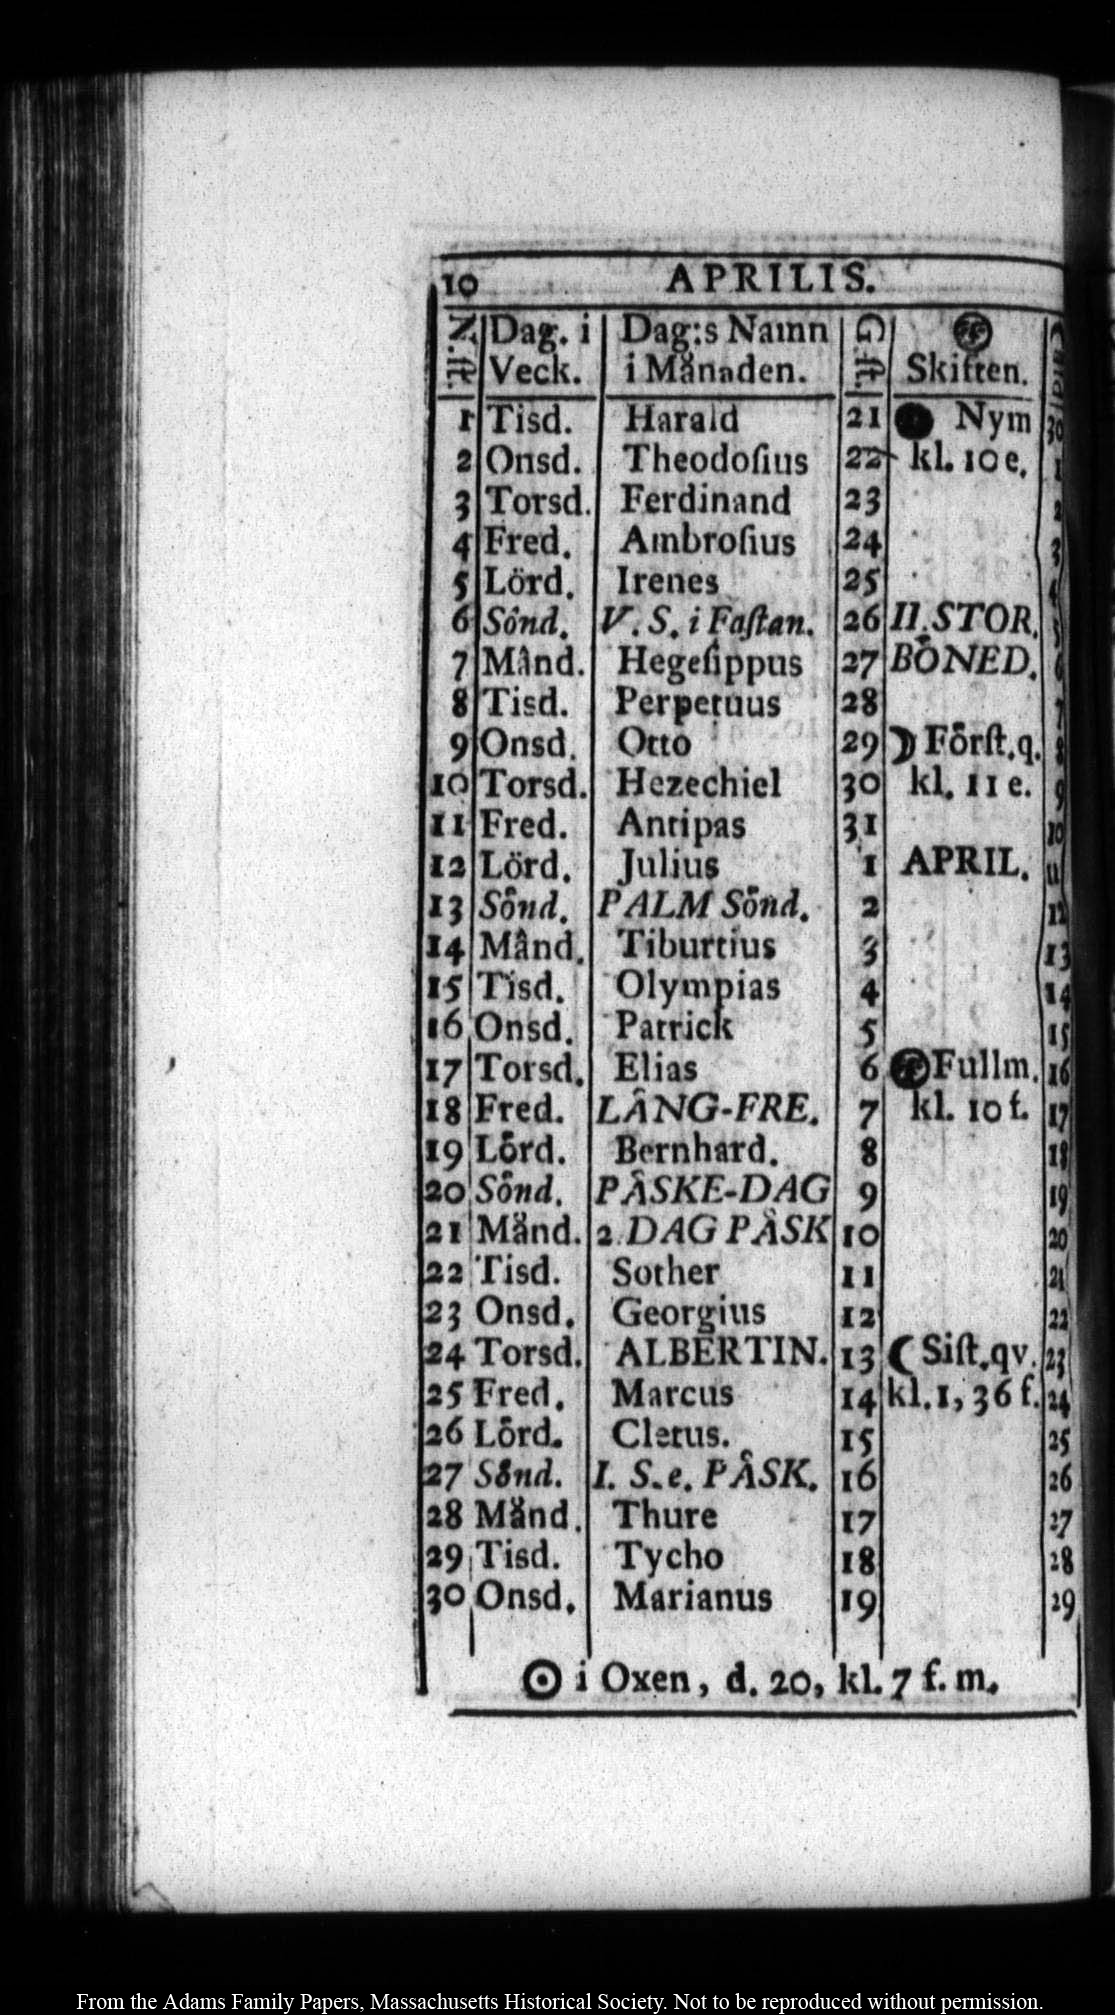 10 APRILIS.
N. ſt. Dag. i Veck. Dag:s Namn i Månaden. G. ſt. Skiften.
1 Tisd. Harald 21 Nym 30
2 Onsd. Theodoſius 22 kl. 10 e. 1
3 Torsd. Ferdinand 23 2
4 Fred. Ambroſius 24 3
5 Lörd. Irenes 25 4
6 Sönd. V. S. i Faſtan. 26 II. STOR. 5
7 Månd. Hegeſippus 27 BÖNED. 6
8 Tisd. Perpetuus 28 7
9 Onsd. Otto 29 ☽ Förſt. q. 8
10 Torsd. Hezechiel 30 kl. 11 e. 9
11 Fred. Antipas 31 10
12 Lörd. Julius 1 APRIL. 11
13 Sönd. PALM Sönd. 2 12
14 Månd. Tiburtius 3 13
15 Tisd. Olympias 4 14
16 Onsd. Patrick 5 15
17 Torsd. Elias 6 Fullm. 16
18 Fred. LÅNG-FRE. 7 kl. 10 f. 17
19 Lörd. Bernhard. 8 18
20 Sönd. PÅSKE-DAG 9 19
21 Månd. 2. DAG PÅSK 10 20
22 Tisd. Sother 11 21
23 Onsd. Georgius 12 22
24 Torsd. ALBERTIN. 13 ☾ Siſt. qv. 23
25 Fred. Marcus 14 kl. 1, 36 f. 24
26 Lörd. Cletus. 15 25
27 Sönd. I. S. e. PÅSK. 16 26
28 Månd. Thure 17 27
29 Tisd. Tycho 18 28
30 Onsd. Marianus 19 29
☉ i Oxen, d. 20, kl. 7 f. m.
From the Adams Family Papers, Massachusetts Historical Society. Not to be reproduced without permission.